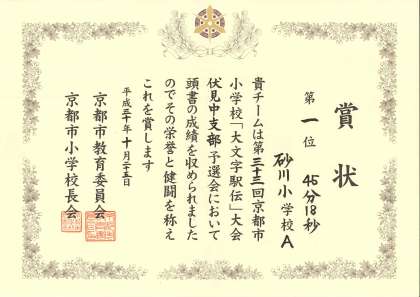 賞状
第一位 45分18秒
砂川小学校A
貴チームは第三十三回京都市
小学校「大文字駅伝」大会
伏見中支部予選会において
頭書の成績を収められました
のでその栄誉と健闘を称え
これを賞します
平成三十年十月二十五日
京都市教育委員会
京都市小学校長会